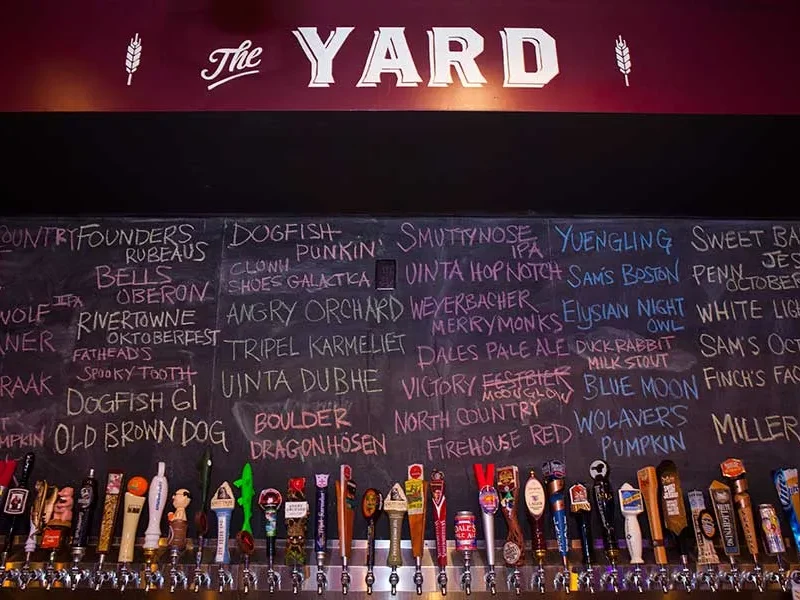 The YARD
OUNTRY
IPA
WOLF
NER
RAAK
MPKIN
FOUNDERS
RUBEAUS
BELLS
OBERON
RIVERTOWNE
OKTOBERFEST
FATHEADS
SPOOKY TOOTH
DOGFISH 61
OLD BROWN DOG
DOGFISH
PUNKIN'
CLOWN
SHOES GALACTICA
ANGRY ORCHARD
TRIPEL KARMELIET
UINTA DUBHE
BOULDER
DRAGONHÖSEN
SMUTTYNOSE
IPA
UINTA HOPNOTCH
WEYERBACHER
MERRYMONKS
DALES PALE ALE
VICTORY FESTBIER
MOONGLOW
NORTH COUNTRY
FIREHOUSE RED
YUENGLING
SAM'S BOSTON
ELYSIAN NIGHT
OWL
DUCK RABBIT
MILK STOUT
BLUE MOON
WOLAVERS
PUMPKIN
SWEET BA
JES
PENN
OCTOBER
WHITE LIG
SAM'S OC
FINCH'S FAC
MILLER